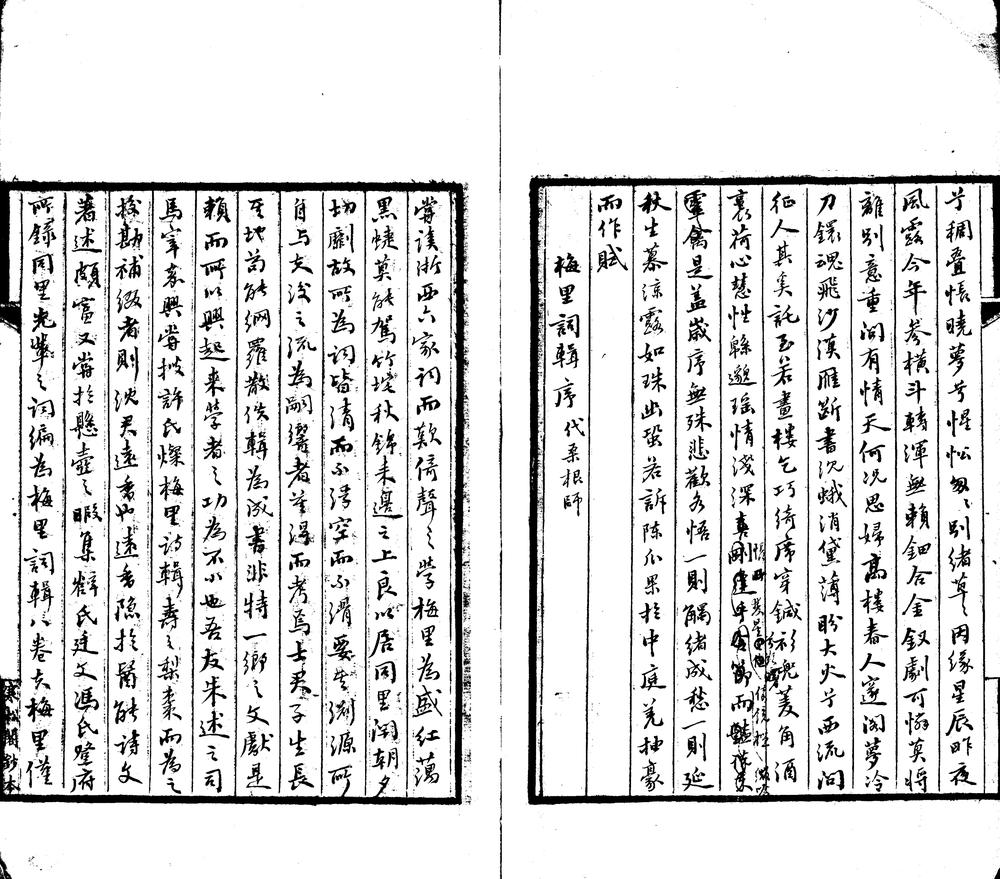 兮稠疊悵曉夢兮惺忪匆〻別緒草〻因緣星辰昨夜
風露今年參橫斗轉渾無賴鈿合金釵劇可憐莫將
離別意重問有情天何況思婦高樓春人邃閣夢冷
刀鐶魂飛沙漠雁斷書沉蛾消黛薄盼大火兮西流問
征人其奚託至若畫樓乞巧綺席穿鍼衫兜菱角酒
裏荷心慧性緜邈瑤情淺深
靈禽是蓋歲序無殊悲歡各悟一則觸緒成愁一則延
秋生慕涼露如珠幽蛩若訴陳瓜果於中庭羌抽豪
而作賦
梅里詞輯序 代桑根師
嘗讀浙西六家詞而歎倚聲之學梅里為盛紅藕
黑蜨莫能駕竹垞秋錦耒邊之上良以居同里閈朝夕
切劘故所為詞皆清而不涉空而不滑要其淵源所
自與夫後之流為嗣響者莫得而考焉士君子生長
其地苟能網羅散佚輯為成書非特一鄉之文獻是
賴而所以興起來學者之功為不小也吾友朱述之司
馬宰嘉興嘗披許氏燦梅里詩輯壽之梨棗而為之
挍勘補綴者則沈君遠香也遠香隱於醫能詩文
著述頗富又嘗於懸壺之暇集薛氏廷文馮氏登府
所錄同里先輩之詞編為梅里詞輯八卷夫梅里僅
寒松閣鈔本